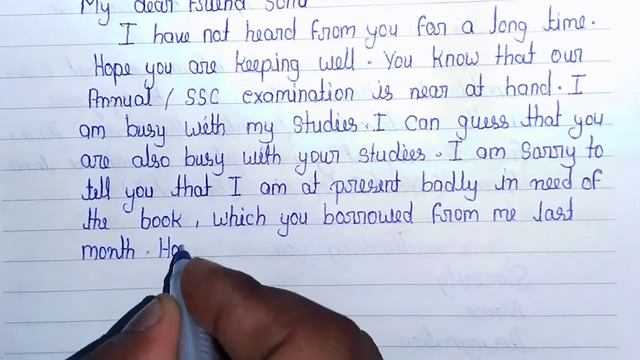 My dear Friend Sonu
I have not heard from you for a long time.
Hope you are keeping well. You know that our
Annual / SSC examination is near at hand. I
am busy with my studies. I can guess that you
are also busy with your studies. I am sorry to
tell you that I am at present badly in need of
the book, which you borrowed from me last
month. Ho